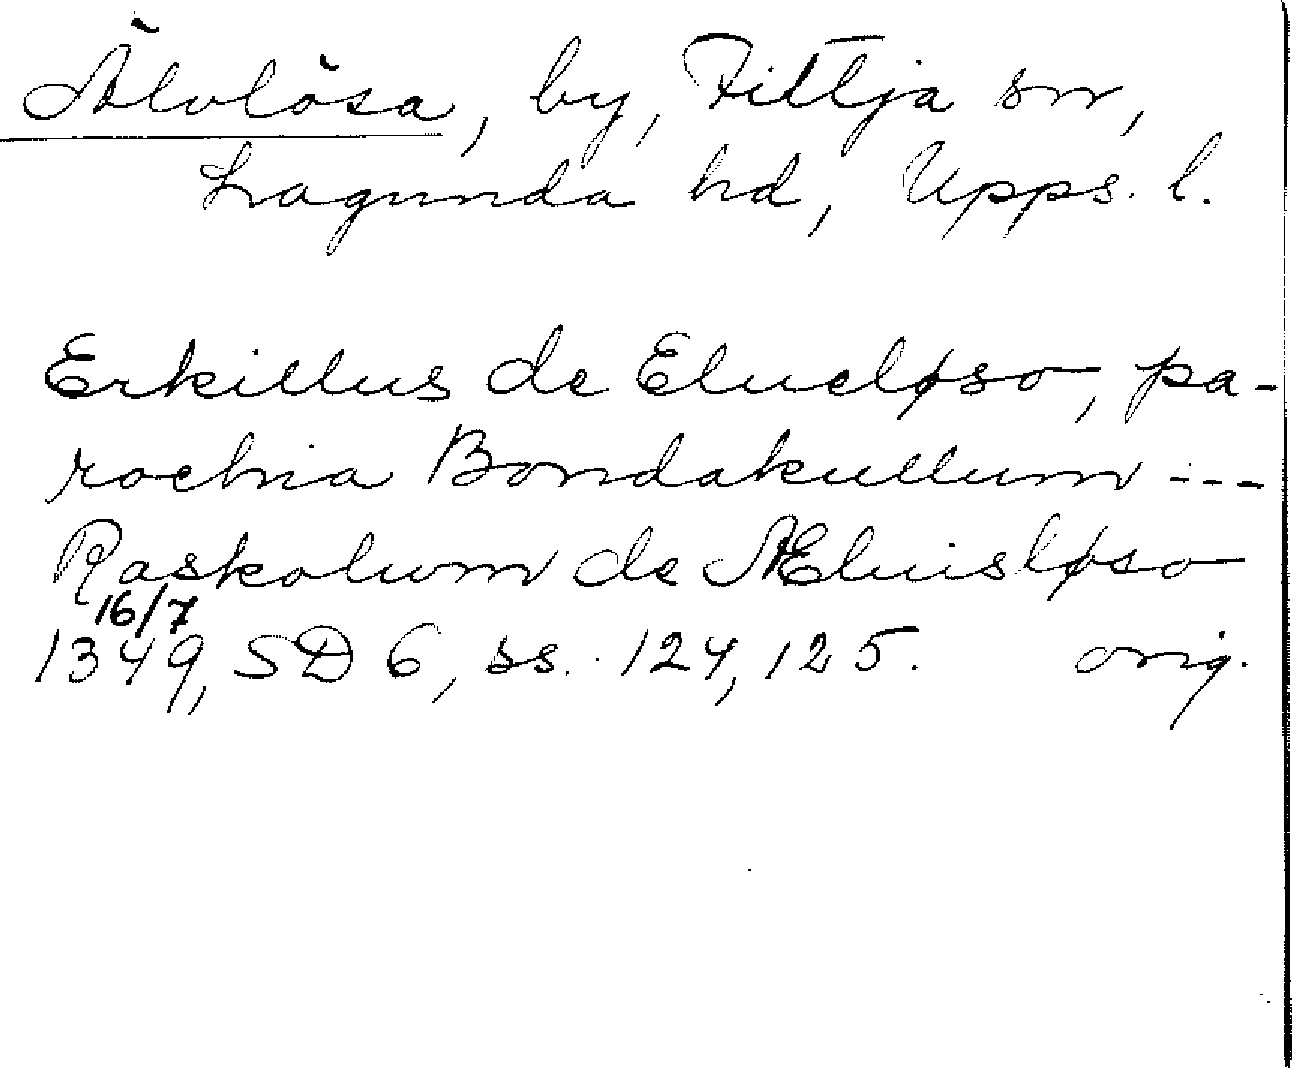 Älvlösa, by, Fittja sn,
Lagunda hd, Upps. l.
Erkillus de Elueløso, pa-
rochia Bondakullum ---
Raskolwm de Æluisløso
16/7
1349, SD 6, ss. 124, 125. orig.